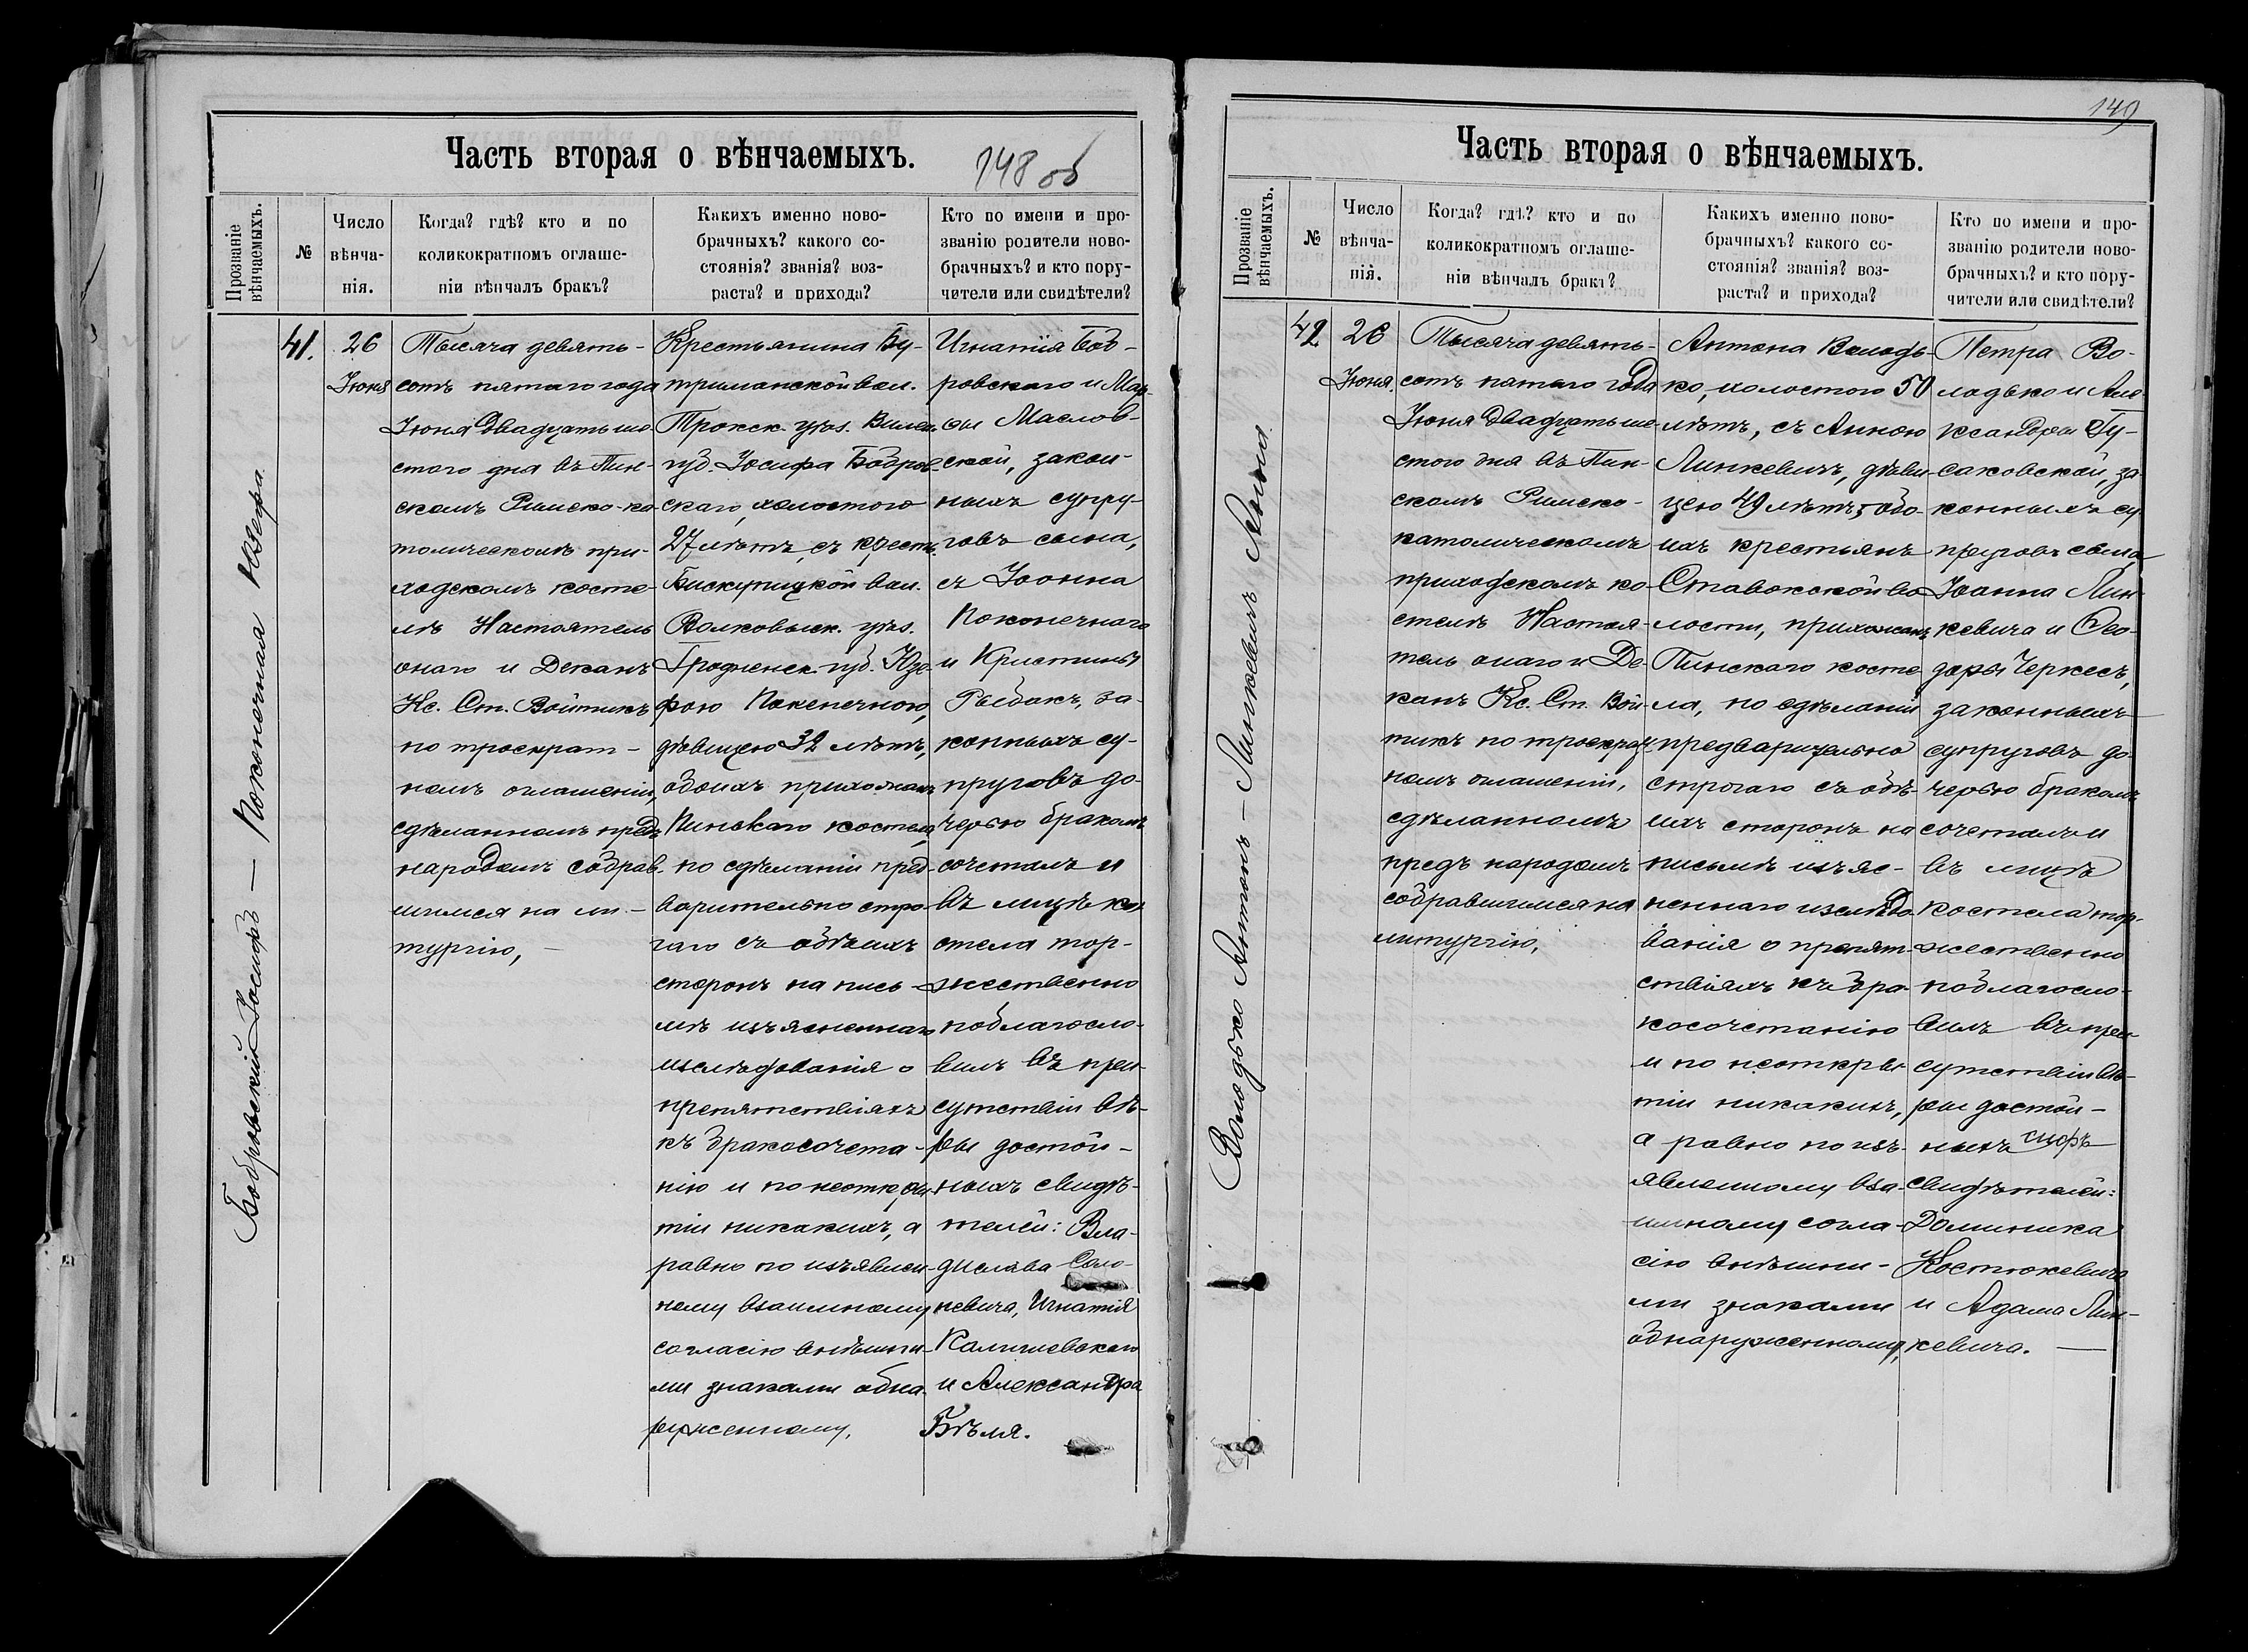 Часть вторая о вѣнчаемыхъ.
148 об
Прозваніе
вѣнчаемыхъ.
№
Число
вѣнча-
нія.
Когда? гдѣ? кто и по
коликократномъ оглаше-
ніи вѣнчалъ бракъ?
Какихъ именно ново-
брачныхъ? какого со-
стоянія? званія? воз-
раста? и прихода?
Кто по имени и про-
званію родители ново-
брачныхъ? и кто пору-
чители или свидѣтели?
Бобровскій Іосифъ — Поконечная Юзефа
41.
26
Іюня
Тысяча девять-
сотъ пятаго года
Іюня двадцать ше-
стого дня въ Пин-
скомъ Римско-ка-
толическомъ при-
ходскомъ косте-
лѣ Настоятель
онаго и Деканъ
Кс. Ст. Войтикъ
по троекрат-
номъ оглашеніи,
сдѣланномъ предъ
народомъ собрав-
шимся на ли-
тургію, —
Крестьянина Бу-
триманской вол.
Трокск. уѣз. Вилен.
губ. Іосифа Бобров-
скаго, холостого
27 лѣтъ, съ крест.
Бискупицкой вол.
Волковыск. уѣз.
Гродненск. губ. Юзе-
фою Поконечною,
дѣвицею 32 лѣтъ,
обоихъ прихожанъ
Пинскаго костела,
по сдѣланіи пред-
варительно стро-
гаго съ обѣихъ
сторонъ на пись-
мѣ изъясненнаго
изслѣдованія о
препятствіяхъ
къ бракосочета-
нію и по неоткры-
тіи никакихъ, а
равно по изъявлен-
ному взаимному
согласію внѣшни-
ми знаками обна-
руженному,
Игнатія Боб-
ровскаго и Мар-
ы Маслов-
ской, закон-
ныхъ супру-
говъ сына,
съ Іоанна
Поконечнаго
и Кристины
Рыбакъ, за-
конныхъ су-
пруговъ до-
черью бракомъ
сочеталъ и
въ лицѣ ко-
стела тор-
жественно
поблагосло-
вилъ въ при-
сутствіи вѣ-
ры достой-
ныхъ свидѣ-
телей: Вла-
дислава Соло-
невича, Игнатія
Калишевскаго
и Александра
Бѣля.
149
Часть вторая о вѣнчаемыхъ.
Прозваніе
вѣнчаемыхъ.
№
Число
вѣнча-
нія.
Когда? гдѣ? кто и по
коликократномъ оглаше-
ніи вѣнчалъ бракъ?
Какихъ именно ново-
брачныхъ? какого со-
стоянія? званія? воз-
раста? и прихода?
Кто по имени и про-
званію родители ново-
брачныхъ? и кто пору-
чители или свидѣтели?
Володько Антонъ — Линкевичъ Анна
42
26
Іюня.
Тысяча девять-
сотъ пятаго года
Іюня двадцать ше-
стого дня въ Пин-
скомъ Римско-
католическомъ
приходскомъ ко-
стелѣ Настоя-
тель онаго и Де-
канъ Кс. Ст. Вой-
тикъ по троекрат-
номъ оглашеніи,
сдѣланномъ
предъ народомъ
собравшимся на
литургію,
Антона Володь-
ко, холостого 50
лѣтъ, съ Анною
Линкевичъ, дѣви-
цею 49 лѣтъ, обо-
ихъ крестьянъ
Ставокской во-
лости, прихожанъ
Пинскаго косте-
ла, по сдѣланіи
предварительно
строгаго съ обѣ-
ихъ сторонъ на
письмѣ изъяс-
неннаго изслѣдо-
ванія о препят-
ствіяхъ къ бра-
косочетанію
и по неоткры-
тіи никакихъ,
а равно по изъ-
явленному вза-
имному согла-
сію внѣшни-
ми знаками
обнаруженному,
Петра Во-
лодько и Але-
ксандры Гу-
саковской, за-
конныхъ су-
пруговъ сына,
Іоанна Лин-
кевича и Ѳео-
доры Черкесъ,
законныхъ
супруговъ до-
черью бракомъ
сочеталъ и
въ лицѣ
костела тор-
жественно
поблагосло-
вилъ въ при-
сутствіи вѣ-
ры достой-
ныхъ
свидѣтелей:
Доминика
Костюкевича
и Адама Лин-
кевича. —